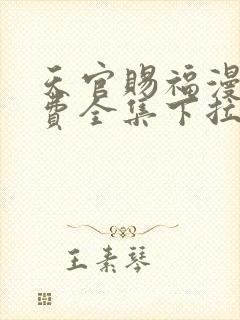 天官赐福漫
费全集下拉
王素琴